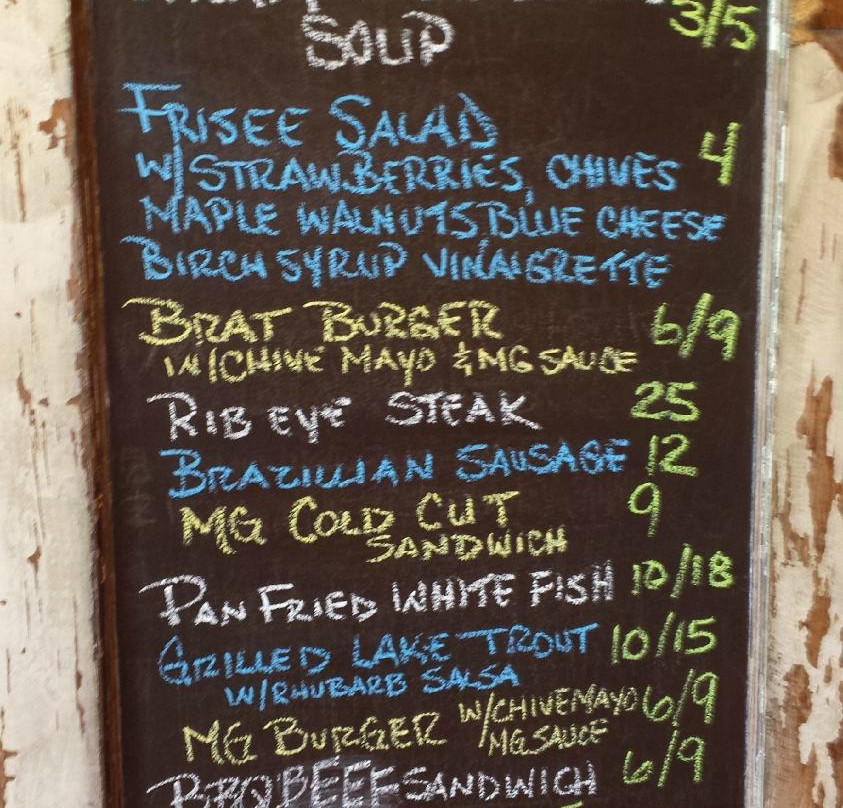 SOUP 3/5
FRISEE SALAD
W/STRAWBERRIES, CHIVES 4
MAPLE WALNUTS, BLUE CHEESE
BIRCH SYRUP VINAIGRETTE
BRAT BURGER 6/9
W/CHIVE MAYO & MG SAUCE
RIB EYE STEAK 25
BRAZILLIAN SAUSAGE 12
MG COLD CUT 9
SANDWICH
PAN FRIED WHITE FISH 10/18
GRILLED LAKE TROUT 10/15
W/RHUBARB SALSA
MG BURGER W/CHIVE MAYO 6/9
MG SAUCE
BBQ BEEF SANDWICH 6/9